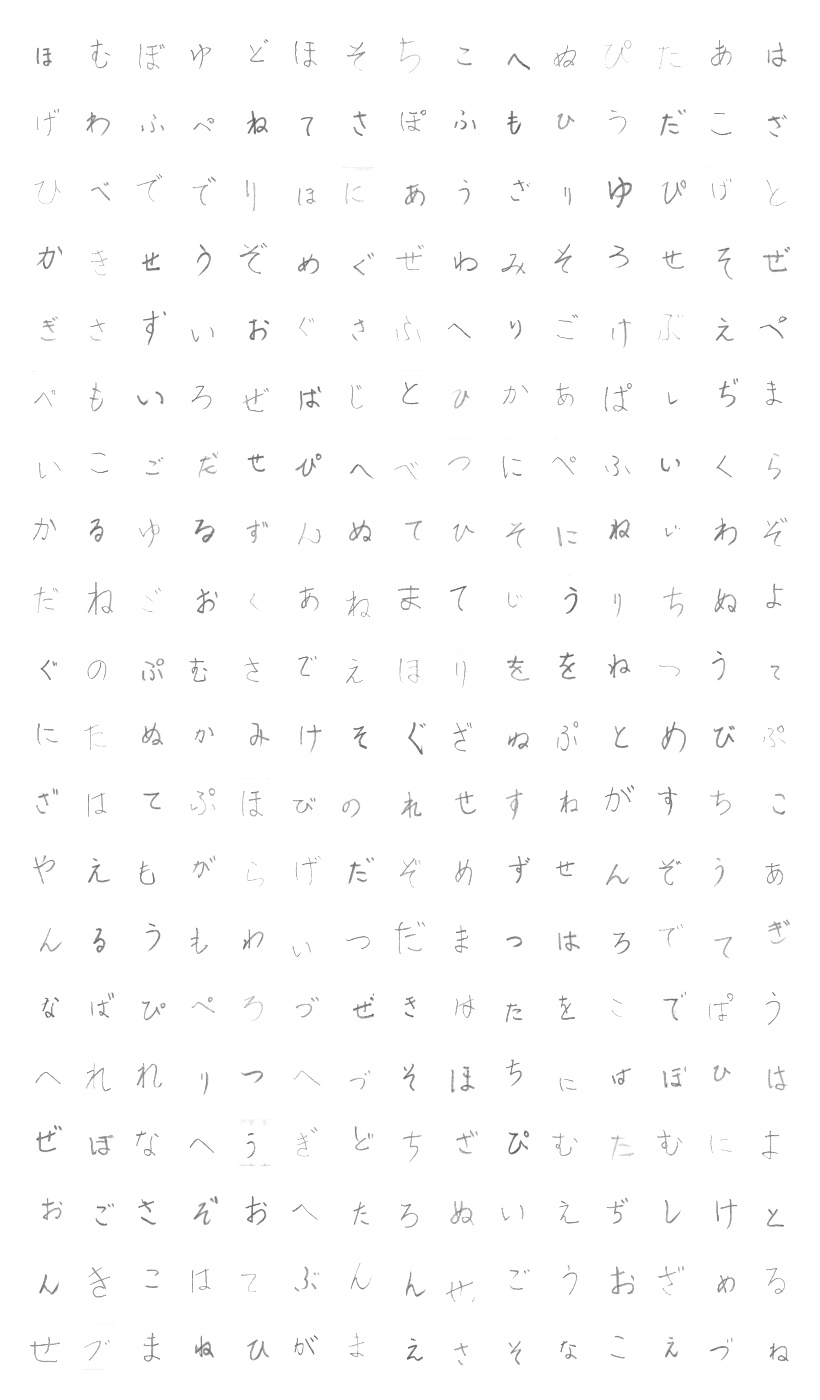 ほむぼゆどほそちこへぬぴたあは
げわふぺねてさぽふもひうだこざ
ひべででりほにあうざりゆぴげと
かきせうぞめぐぜねみそろせそぜ
ぎさずいおぐさふへりごけぶえぺ
ぺもいろぜばじとひかあぱしぢま
いこごだせぴへべつにぺふいくら
かるゆるずんぬてひそにねじわぞ
だねごおくあねまてじうりちぬよ
ぐのぷむさでえほりををねつうて
にたぬかみけそぐざぬぷとめびぷ
ざはてぷほびのれせすねがすちこ
やえもがらげだぞめずせんぞうあ
んるうもわいつだまつはろでてぎ
なばぴぺろづぜきはたをこでぱう
へれれりつへづそほちにはぼひは
ぜぼなへうぎどちざぴむたむにま
おごさぞおへたろぬいえぢしけと
んきこはてぶんんせごうおざめる
せづまねひがまえさそなこえづね